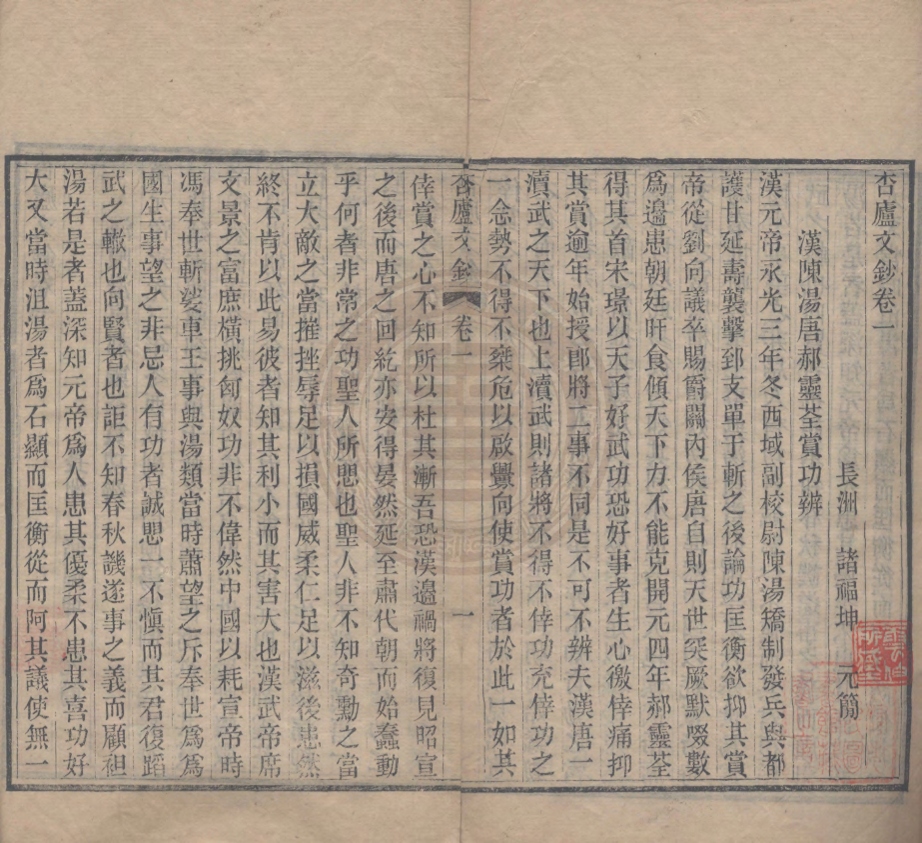 杏廬文鈔卷一
長洲 諸福坤 元簡
漢陳湯唐郝靈荃賞功辨
漢元帝永光三年冬西域副校尉陳湯矯制發兵與都
護甘延壽襲擊郅支單于斬之後論功匡衡欲抑其賞
帝從劉向議卒賜爵關內侯唐自則天世突厥默啜數
爲邊患朝廷旰食傾天下力不能克開元四年郝靈荃
得其首宋璟以天子好武功恐好事者生心徼倖痛抑
其賞逾年始授郎將二事不同是不可不辨夫漢唐一
瀆武之天下也上瀆武則諸將不得不倖功充倖功之
一念勢不得不椉危以啟釁向使賞功者於此一如其
杏廬文鈔 卷一 一
倖賞之心不知所以杜其漸吾恐漢邊禍將復見昭宣
之後而唐之回紇亦安得晏然延至肅代朝而始蠢動
乎何者非常之功聖人所愳也聖人非不知奇勳之當
立大敵之當摧挫辱足以損國威柔仁足以滋後患然
終不肯以此易彼者知其利小而其害大也漢武帝席
文景之富庶橫挑匈奴功非不偉然中國以耗宣帝時
馮奉世斬莎車王事與湯類當時蕭望之斥奉世爲爲
國生事望之非忌人有功者誠愳一不愼而其君復蹈
武之轍也向賢者也詎不知春秋譏遂事之義而顧袒
湯若是者蓋深知元帝爲人患其優柔不患其喜功好
大又當時沮湯者爲石顯而匡衡從而阿其議使無一